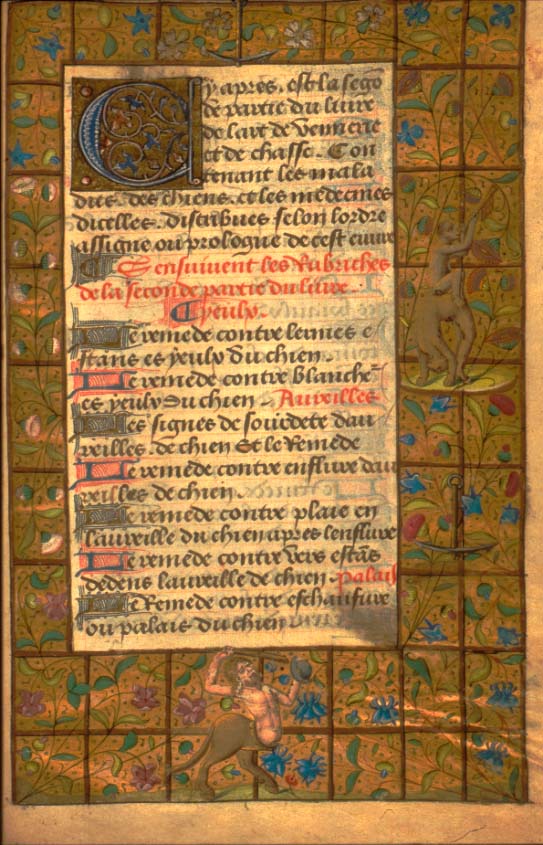 Cy apres, est la secõ
de partie du liure
de lart de vennerie
et de chasse. Con
tenant les mala
dies. des chiens. et les medecines
dicelles. distribues selon lordre
assigne ou prologue de cest euure
Sensuiuent les Rubriches
de la seconde partie du liure.
Yeulx.
Le remede contre lermes e
stans es yeulx du chien.
Le remede contre blanche~
es yeulx du chien. Aureilles
Les signes de sourdete dau
reilles. de chien Et le Remede
Le remede contre enflure dau
reilles de chien.
Le remede contre plaie en
laureille du chien apres lenflure
Le remede contre vers estãs
dedens laureille de chien. Palais
Le Remede contre eschaufure
ou palais du chien